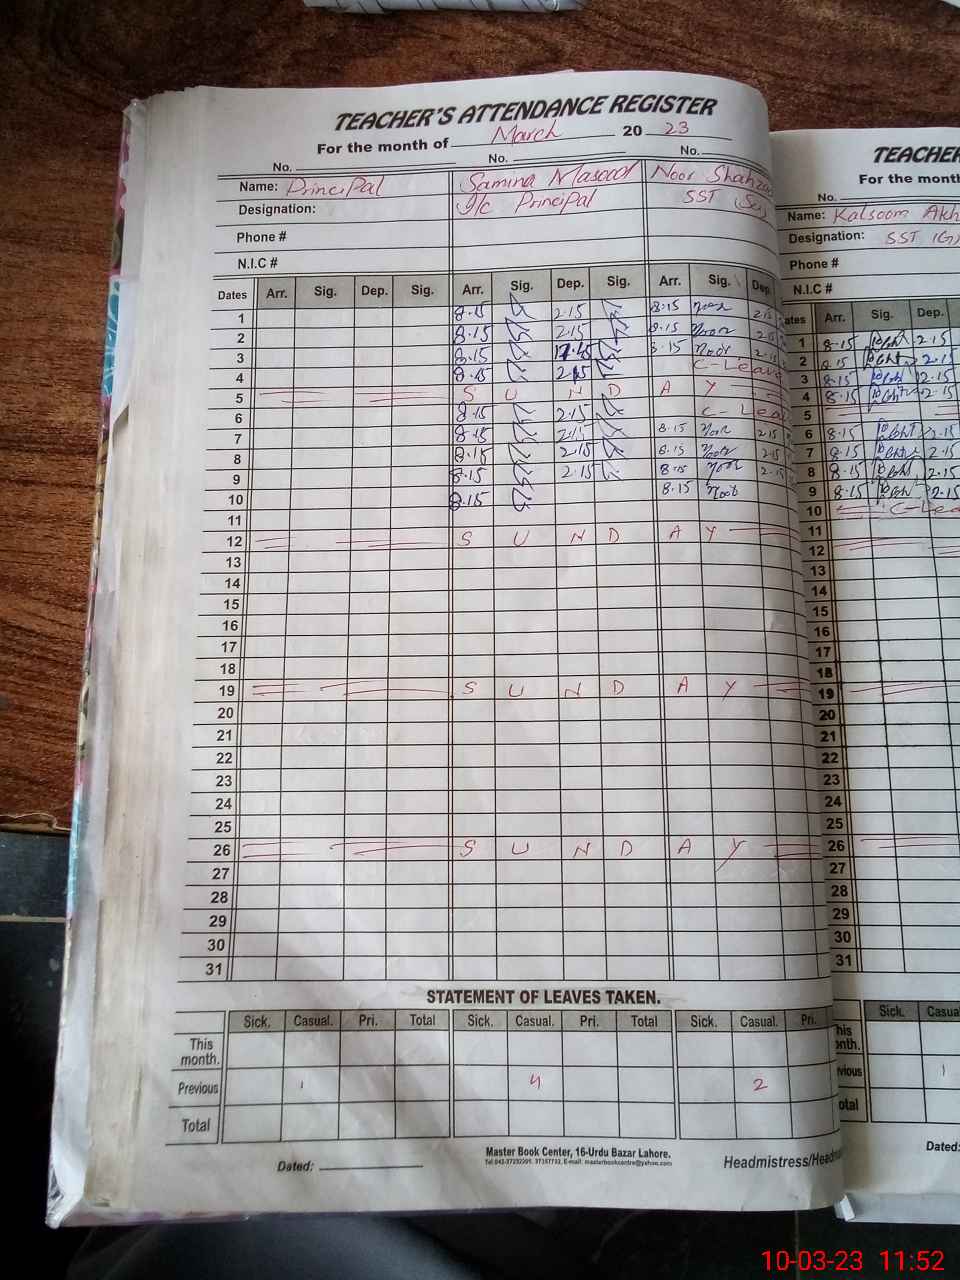 TEACHER'S ATTENDANCE REGISTER
For the month of March 20 23
No. No. No.
Name: Principal Samina Masood Noor Shahza
Designation: I/c Principal SST (Sci)
Phone #
N.I.C #
Dates Arr. Sig. Dep. Sig. Arr. Sig. Dep. Sig. Arr. Sig. Dep.
1 8.15 2.15 8.15 Noor 2.15
2 8.15 2.15 8.15 Noor 2.15
3 8.15 8.15 Noor 2.15
4 8.15 2.15 C-Leave
5 S U N D A Y
6 8.15 2.15 C-Lea
7 8.15 2.15 8.15 Noor 2.15
8 8.15 2.15 8.15 Noor 2.15
9 8.15 2.15 8.15 Noor 2.15
10 8.15 8.15 Noor
11
12 S U N D A Y
13
14
15
16
17
18
19 S U N D A Y
20
21
22
23
24
25
26 S U N D A Y
27
28
29
30
31
STATEMENT OF LEAVES TAKEN.
Sick. Casual. Pri. Total Sick. Casual. Pri. Total Sick. Casual. Pri.
This month.
Previous 1 4 2
Total
Master Book Center, 16-Urdu Bazar Lahore.
Dated: Headmistress/Headma
TEACHER
For the month
No.
Name: Kalsoom Akh
Designation: SST (G)
Phone #
N.I.C #
ates Arr. Sig. Dep.
1 8.15 2.15
2 8.15 2.15
3 8.15 2.15
4 8.15 2.15
5
6 8.15 2.15
7 8.15 2.15
8 8.15 2.15
9 8.15 2.15
10 C-Lea
11
12
13
14
15
16
17
18
19
20
21
22
23
24
25
26
27
28
29
30
31
Sick. Casua
his
onth.
vious 1
otal
Dated:
10-03-23 11:52